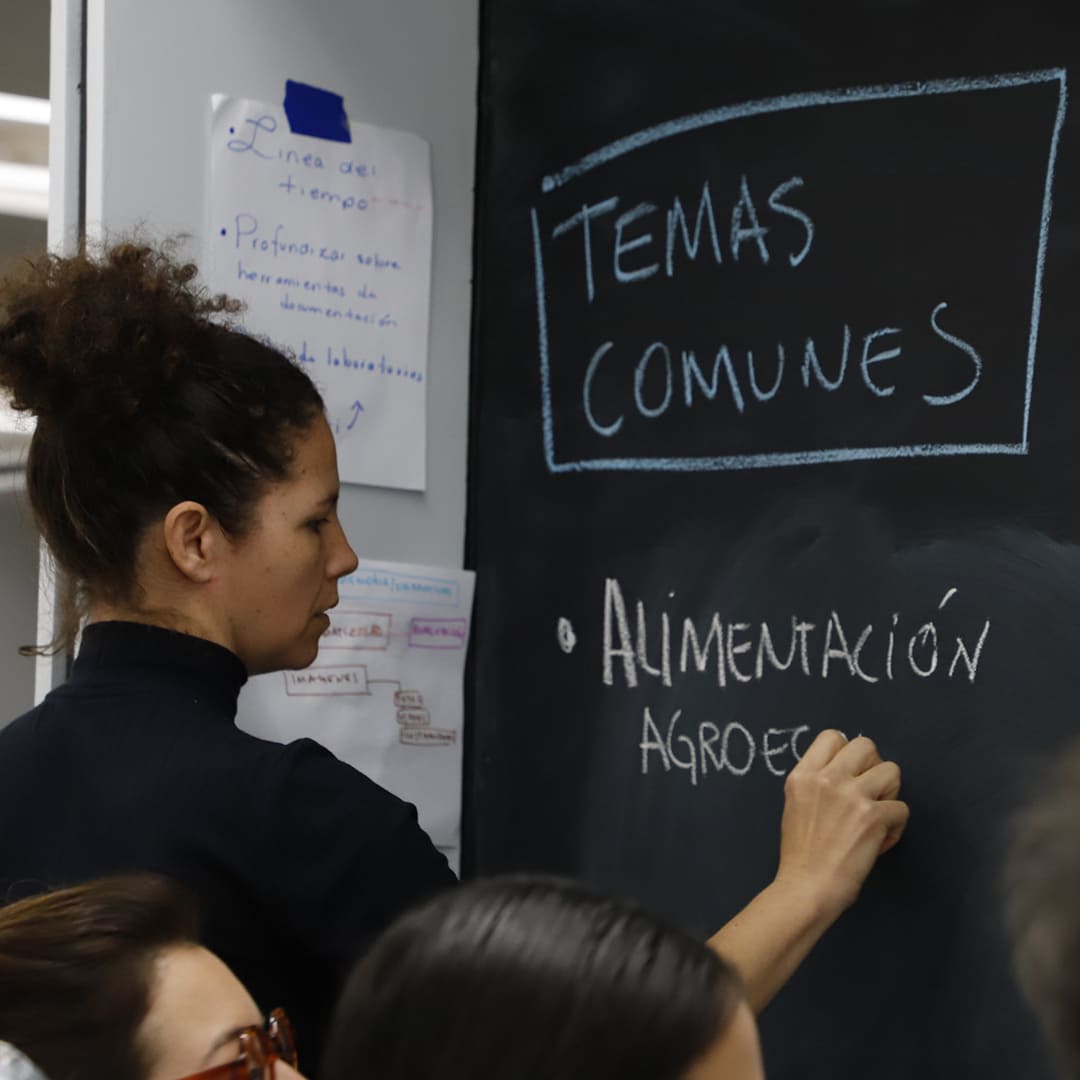 • Línea del
tiempo
• Profundizar sobre
herramientas de
documentación
laboratorios
TEMAS
COMUNES
• ALIMENTACIÓN
AGROEC
IMÁGENES